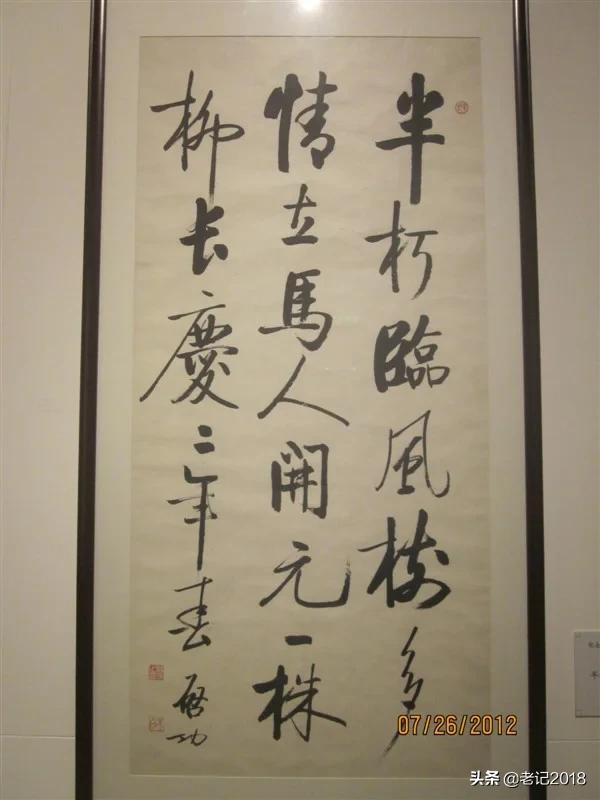 半朽臨風樹多
情立馬人開元一株
柳長慶二年春
啓功
07/26/2012
头条 @老记2018